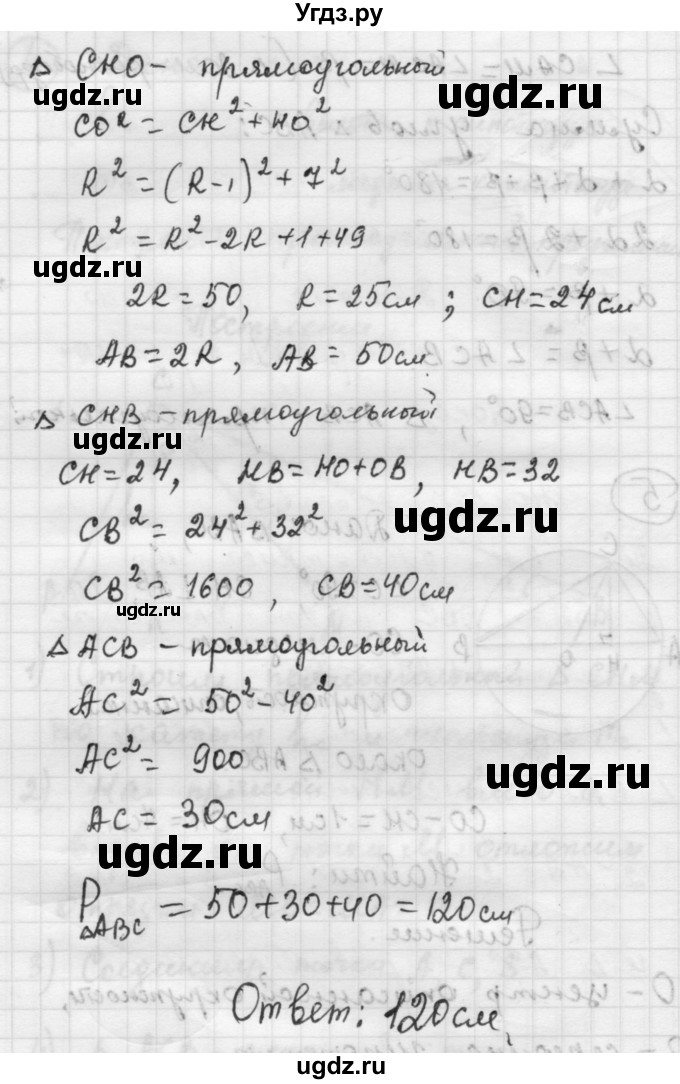 Угдз.ру
△ CHO – прямоугольный
ugdz.ru
ugdz.ru
CO² = CH² + HO²
R² = (R-1)² + 7²
R² = R² - 2R + 1 + 49
ugdz.ru
2R = 50, R = 25 см ; CH = 24 см
AB = 2R, AB = 50 см
△ CHB – прямоугольный
ugdz.ru
CH = 24, HB = HO + OB, HB = 32
CB² = 24² + 32²
ugdz.ru
CB² = 1600, CB = 40 см
ugdz.ru
△ ACB – прямоугольный
AC² = 50² - 40²
AC² = 900
ugdz.ru
AC = 30 см
ugdz.ru
P△ABC = 50 + 30 + 40 = 120 см
Ответ: 120 см,
ugdz.ru
ugdz.ru